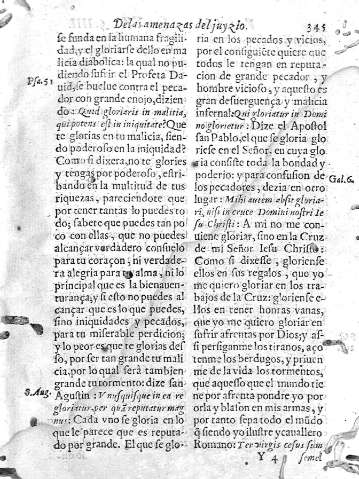 De las amenazas del juyzio. 345
se funda en la humana fragili-
dad, y el gloriarse dello en ma
licia diabolica: la qual no pu-
diendo sufrir el Profeta Da-
Psa. 51
uid, se buelue contra el peca-
dor con grande enojo, dizien
do: Quid gloriaris in malitia,
qui potens est in iniquitate? Que
te glorias en tu malicia, sien-
do poderoso en la iniquidad?
Como si dixera, no te glories
y tengas por poderoso, estri-
bando en la multitud de tus
riquezas, pareciendote que
por tener tantas lo puedes to
do; sabete que puedes tan po
co con ellas, que no puedes
alcançar verdadero consuelo
para tu coraçon, ni verdade-
ra alegria para tu alma, ni lo
principal que es la bienauen-
turança; y si esto no puedes al
cançar que es lo que puedes,
sino iniquidades y pecados,
para tu miserable perdicion;
y lo peor es que te glorias des
so, por ser tan grande tu mali
cia, por lo qual será tambien
grande tu tormento: dize san
S. Aug.
Agustin: Vnusquisque in ea re
gloriatur, per quã reputatur mag
nus: Cada vno se gloria en lo
que le parece que es reputa-
do por grande. El que se glo-
ria en los pecados y vicios,
por el consiguiẽte quiere que
todos le tengan en reputa-
cion de grande pecador, y
hombre vicioso, y aquesto es
gran desuerguença y malicia
infernal: Qui gloriatur in Domi
no glorietur: Dize el Apostol
san Pablo, el que se gloria glo
riese en el Señor, en cuya glo
ria consiste toda la bondad y
poderio: y para confusion de
Gal. 6.
los pecadores, dezia en otro
lugar: Mihi autem absit gloria-
ri, nisi in cruce Domini nostri Ie
su Christi: A mi no me con-
uiene gloriar, sino en la Cruz
de mi Señor Iesu Christo:
Como si dixesse, gloriense
ellos en sus regalos, que yo
me quiero gloriar en los tra-
bajos de la Cruz: gloriense e-
llos en tener honras vanas,
que yo me quiero gloriar en
sufrir afrentas por Dios; y as-
si persiganme los tiranos, aço
tenme los berdugos, y priuen
me de la vida los tormentos,
que aquesso que el mundo tie
ne por afrenta pondre yo por
orla y blason en mis armas, y
por tanto sepa todo el mũdo
q̃ siendo yo ilustre y cauallero
Romano: Ter virgis cesus sum
Y 4 semel